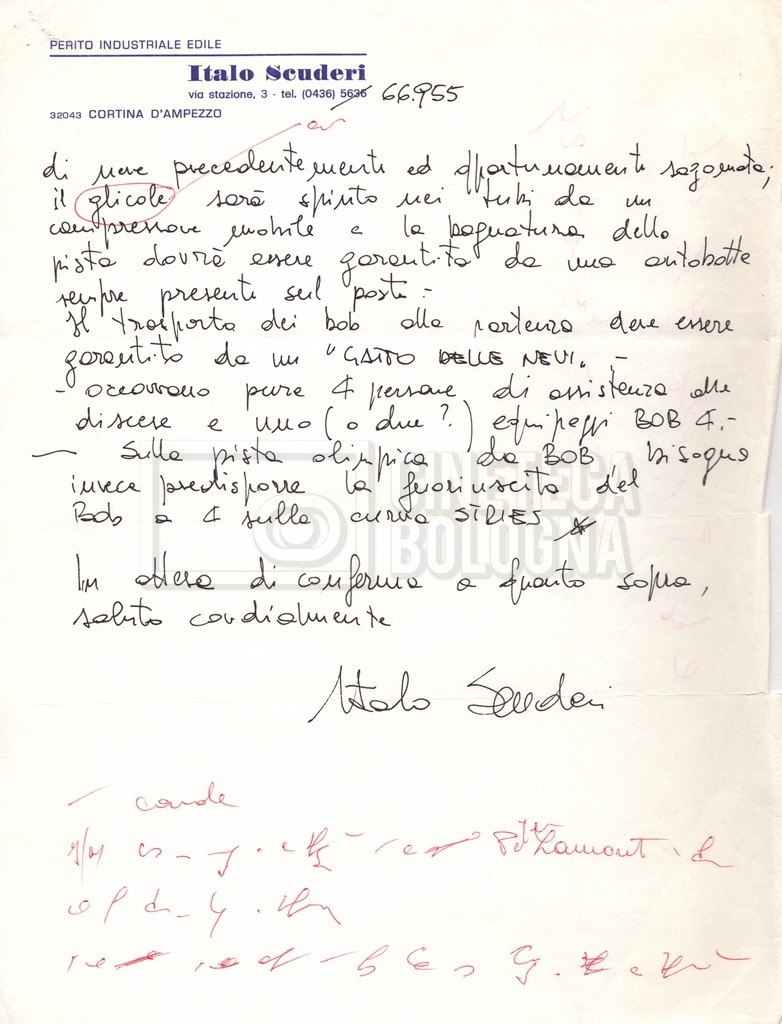 PERITO INDUSTRIALE EDILE
Italo Scuderi
via stazione, 3 - tel. (0436) 5636 66.955
32043 CORTINA D'AMPEZZO
di neve precedentemente ed opportunamente sagomata;
il glicole sarà spinto nei tubi da un
compressore mobile e la bagnatura della
pista dovrà essere garantita da una autobotte
sempre presente sul posto -
Il trasporto dei bob alla partenza deve essere
garantito da un "GATTO DELLE NEVI" -
- occorrono pure 4 persone di assistenza alle
discese e uno (o due?) equipaggi BOB 4.-
- Sulla pista olimpica da BOB bisogna
invece predisporre la fuoriuscita del
Bob a 4 sulla curva STRIES
CINETECA
BOLOGNA
In attesa di conferma a quanto sopra,
saluto cordialmente
Italo Scuderi
corde
Lamont